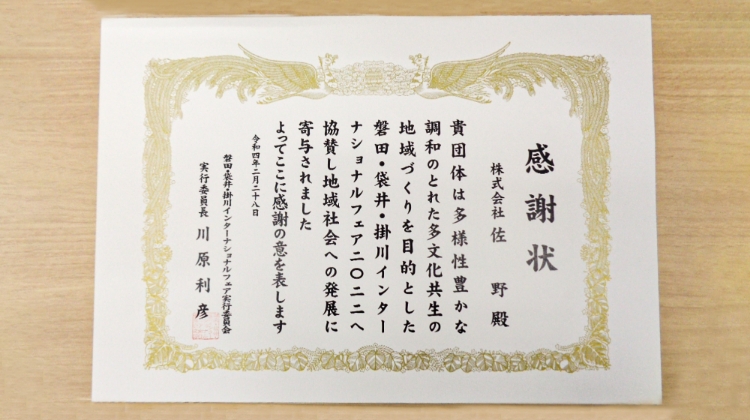 感謝状
株式会社 佐野殿
貴団体は多様性豊かな
調和のとれた多文化共生の
地域づくりを目的とした
磐田・袋井・掛川インター
ナショナルフェア二〇二二へ
協賛し地域社会への発展に
寄与されました
よってここに感謝の意を表します
令和四年二月二十八日
磐田・袋井・掛川インターナショナルフェア実行委員会
実行委員長 川原利彦